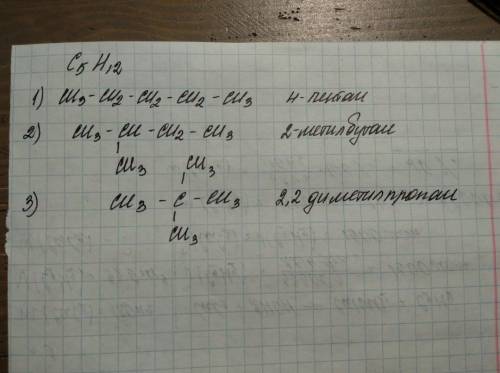 C5H12
1) CH3-CH2-CH2-CH2-CH3 н-пентан
2) CH3-CH-CH2-CH3 2-метилбутан
CH3 CH3
3) CH3-C-CH3 2,2 диметилпропан
CH3